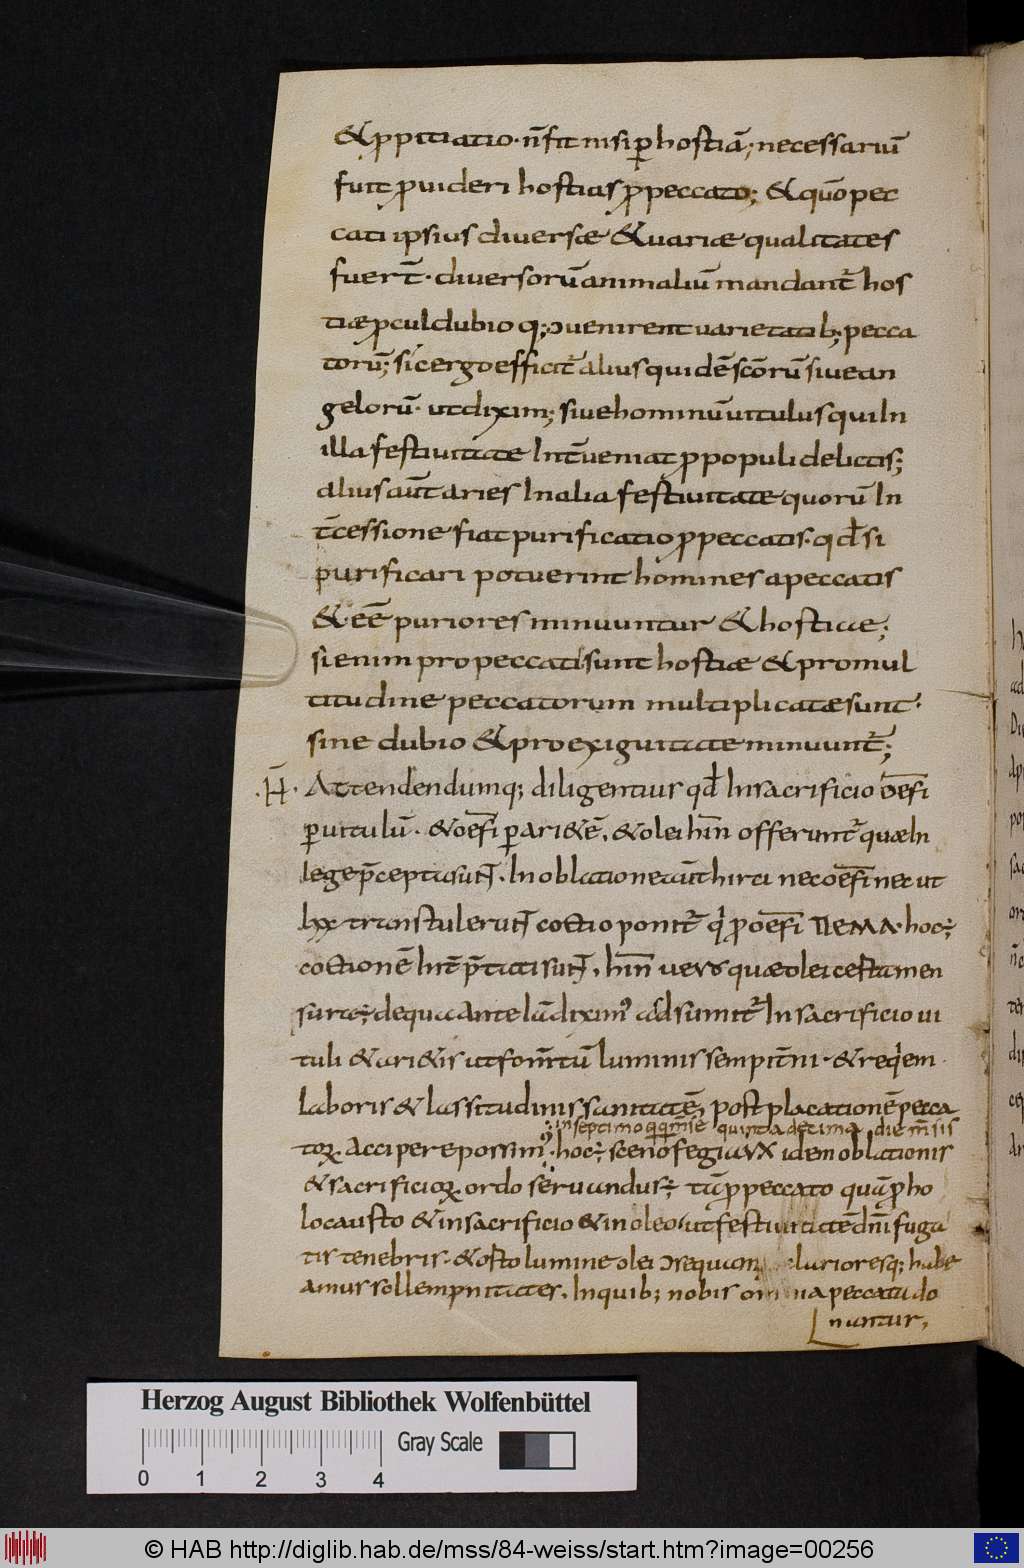 & ꝓpitiatio · n̄ fit nisi ꝑ hostiā; necessariū
fuit ꝓuideri hostias ꝓ peccato; & quō pec
cati ipsius diuersæ & uariæ qualitates
fuer̄t · diuersorū animalium̄ mandant̄ hos
tiæ ꝓcul dubio q; ↄuenirent uarietatib; pecca
torū; sic ergo efficit̄ alius quidē sc̄orū siue an
gelorū · ut dixim; siue hominū uitulus qui In
illa festiuitate Int̄ueniat ꝓ populi delictis;
alius aūt aries In alia festiuitate quorū In
t̄cessione fiat purificatio ꝓ peccatis · qd̄ si
purificari potuerint homines a peccatis
& eē puriores minuuntur & hostiae;
si enim pro peccatis sunt hostiæ & pro mul
titudine peccatorum multiplicatæ sunt ·
sine dubio & pro exiguitate minuunt̄;
· H̄ · Attendendumq; diligentius qd̄ In sacrificio oefi
ꝑ uitulū · & oefi ꝑ ari&ē, & olei hin offerunt̄ quæ In
lege p̄cepta sunt · In oblatione aūt hirci nec oefi nec ut
lxx transtulerunt coctio ponit̄ ꝓ oefi ΠΕΜΑ · hoc ÷
coctionē Int̄p̄tati sunt, hin uero quæ olei est amen
sura; de qua ante iā diximꝰ adsumit̄ In sacrificio ui
tuli & ari&is ut fom̄tū luminis sempit̄ni · & requiem
laboris & lassitudinis sanitatē, post placationē pecca
in septimo quoq; mense quinta decima die m̄sis
toꝝ accipere possimꝰ · hoc ÷ scenofegia ux idem oblationis
& sacrificioꝝ ordo seruandus ÷ tā ꝓ peccato quā ꝓ ho
locausto & in sacrificio & in oleo · ut festiuitatē dn̄i fuga
tis tenebris · & orto lumine olei ↄsequam lætioresq; habe
amus sollempnitates. In quib; nobis omnia peccata do
nantur,
Herzog August Bibliothek Wolfenbüttel
Gray Scale
0 1 2 3 4
© HAB http://diglib.hab.de/mss/84-weiss/start.htm?image=00256